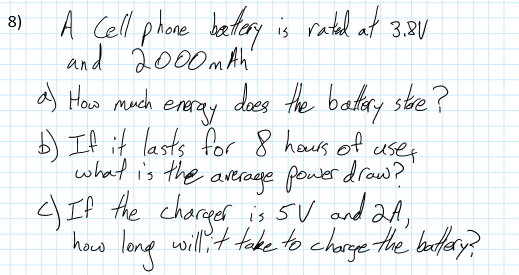 8) A Cell phone battery is rated at 3.8V
and 2000mAh
a) How much energy does the battery store?
b) If it lasts for 8 hours of use,
what is the average power draw?
c) If the charger is 5V and 2A,
how long will it take to charge the battery?